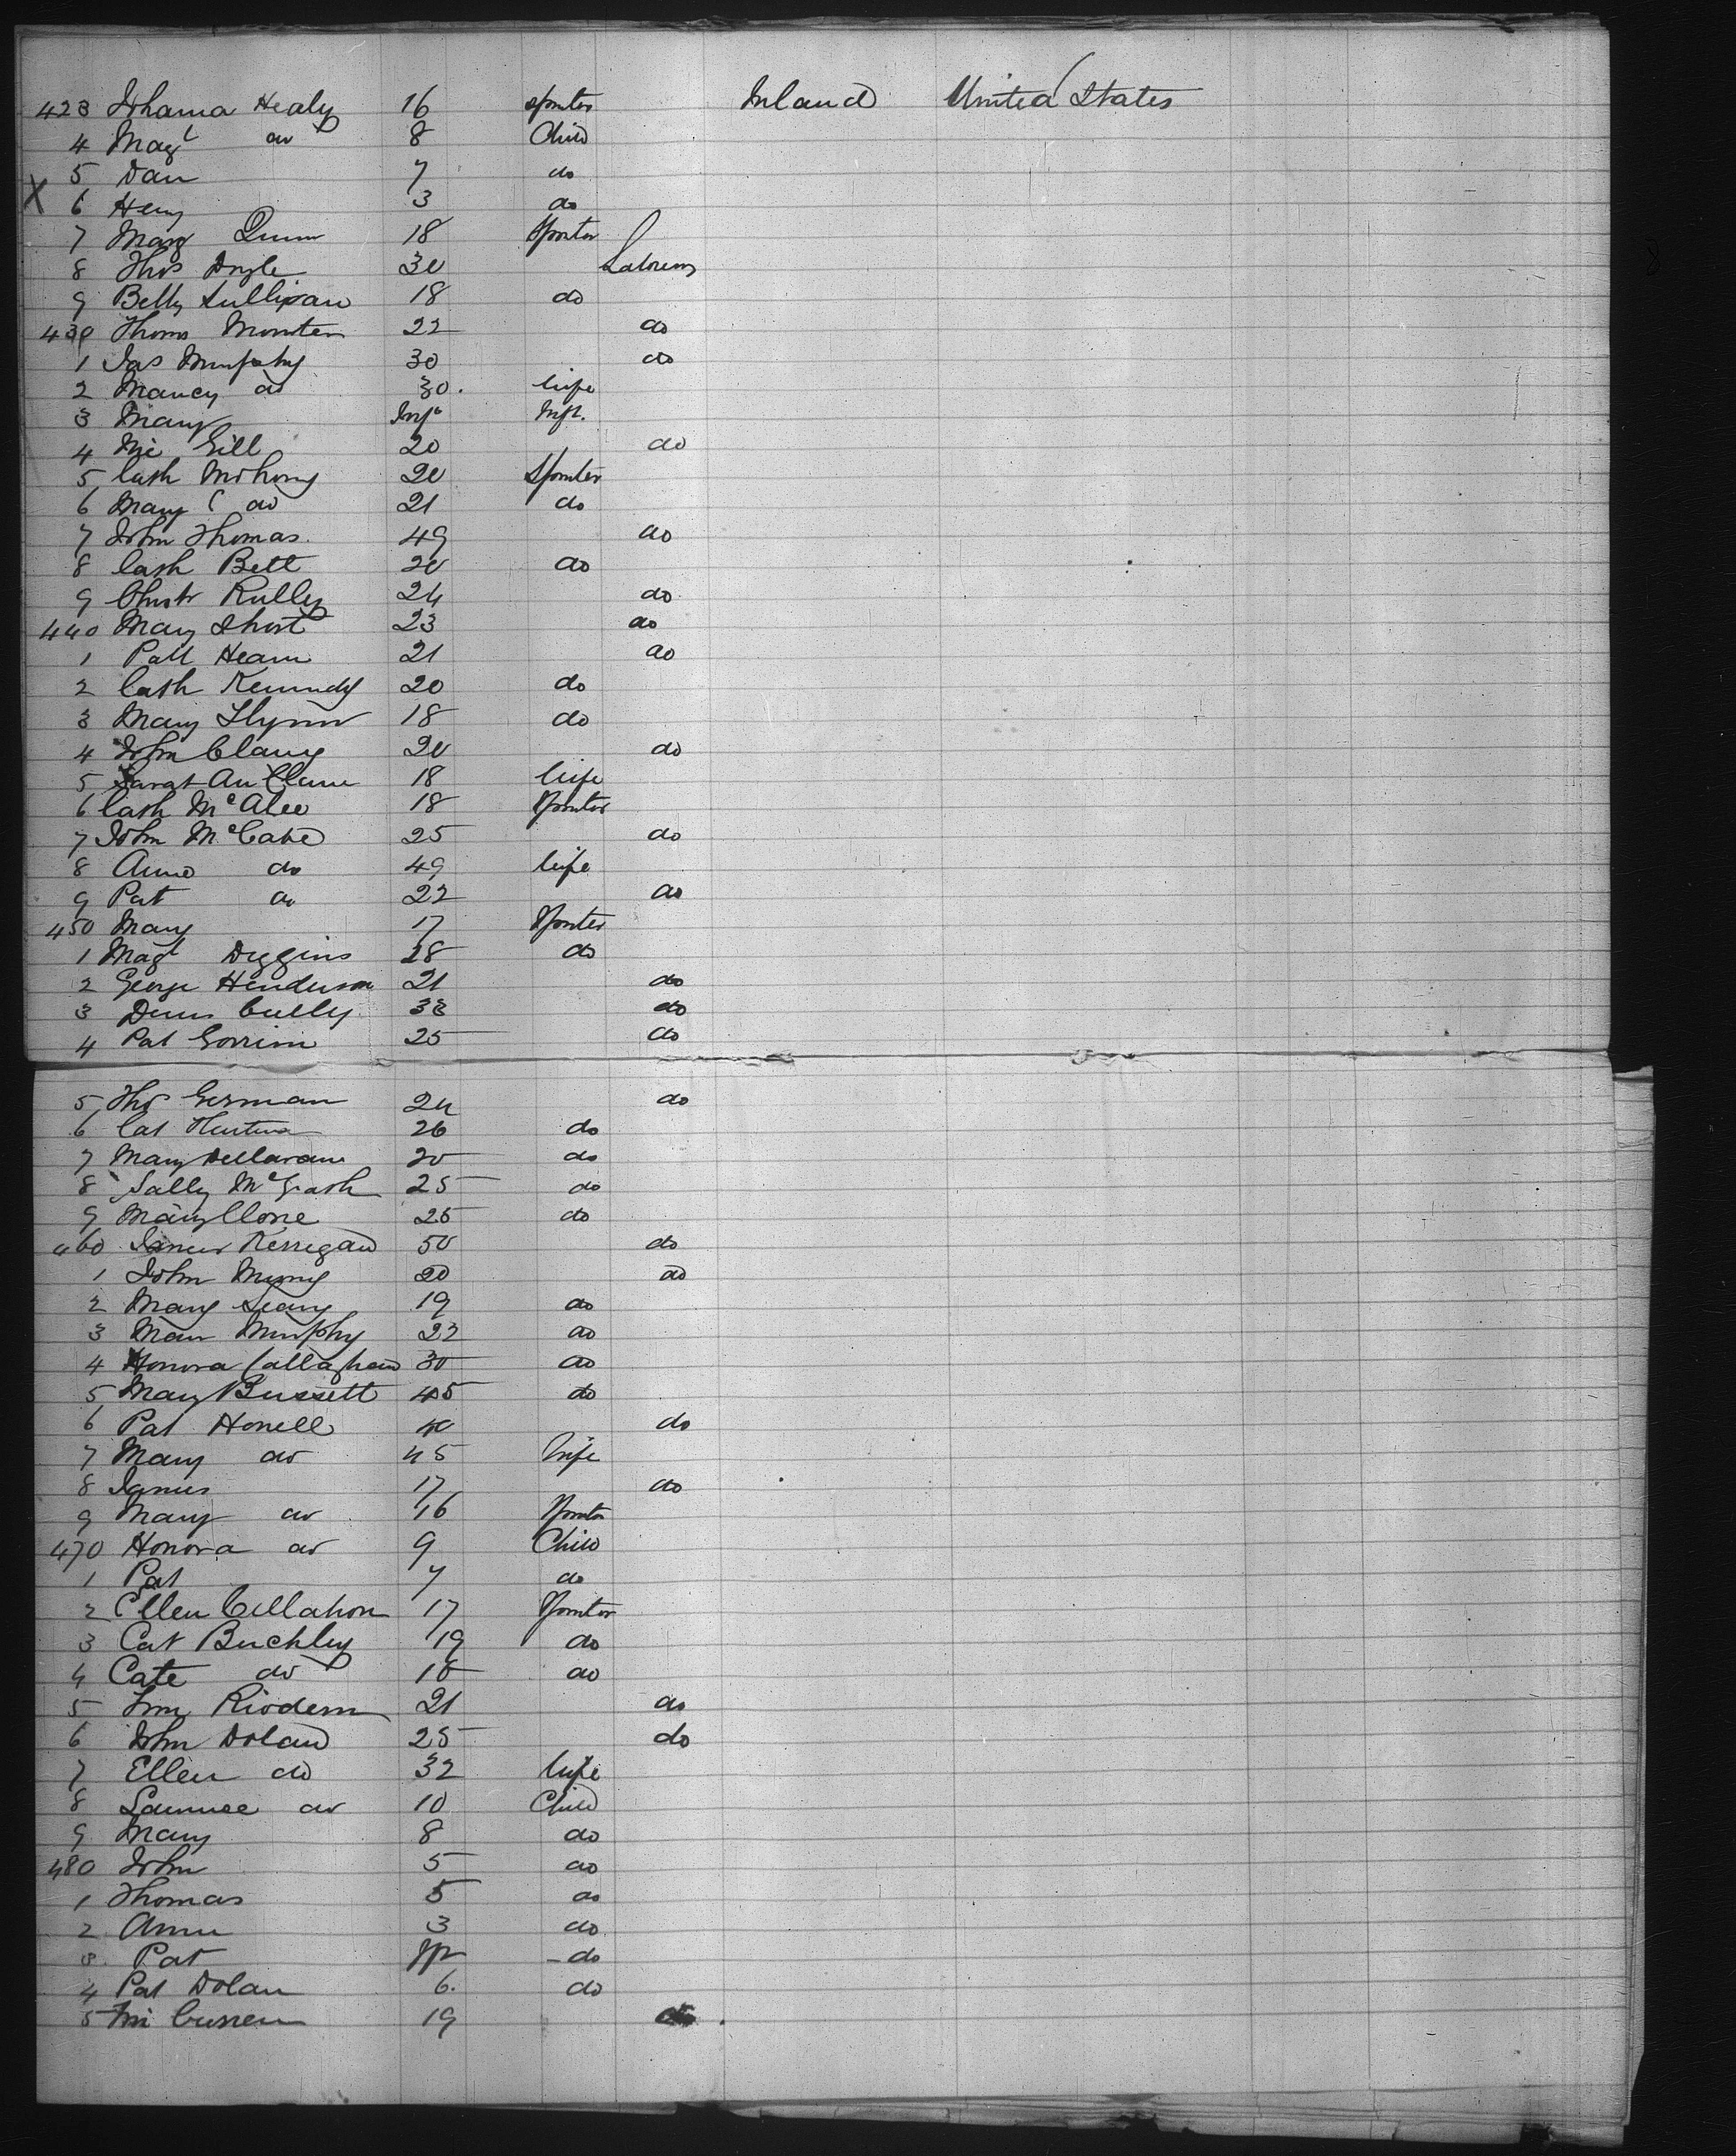 423 Johanna Healy 16 Spinster Ireland United States
4 Magt do 8 Child
5 Dan 7 do
X 6 Heny 3 do
7 Mary Quinn 18 Spinster
8 Thos Doyle 30 Laborers
9 Betty Sullivan 18 do
430 Thoms 22 do
1 Jas Murphy 30 do
2 Nancy do 30. Wife
3 Mary Inft Inft.
4 Mic Gill 20 do
5 Cath Mohony 20 Spinster
6 Mary do 21 do
7 John Thomas 49 do
8 Cath Bett 20 do
9 Christr Rully 24 do
440 Mary Short 23 do
1 Patt Hearn 21 do
2 Cath Kennedy 20 do
3 Mary Flynn 18 do
4 John Clany 20 do
5 Sarat An 18 Wife
6 Cath McAlee 18 Spinster
7 John McCabe 25 do
8 Anne do 49 Wife
9 Pat do 22 do
450 Mary 17 Spinster
1 Magt Diggins 28 do
2 George Henderson 21 do
3 Denis Cully 33 do
4 Pat 25 do
5 Thos German 24 do
6 Cat 26 do
7 Mary 20 do
8 Sally McGrath 25 do
9 Mary Clone 25 do
460 James Kerrigan 50 do
1 John 20 do
2 Mary Leary 19 do
3 Mary Murphy 22 do
4 Honora Callaghan 30 do
5 Mary Bussett 45 do
6 Pat Honell 40 do
7 Mary do 45 Wife
8 James 17 do
9 Mary do 16 Spinster
470 Honora do 9 Child
1 Pat 7 do
2 Ellen Callahon 17 Spinster
3 Cat Buckley 19 do
4 Cate do 18 do
5 Tim Riodern 21 do
6 John Dolan 25 do
7 Ellen do 32 Wife
8 do 10 Child
9 Mary 8 do
480 John 5 do
1 Thomas 5 do
2 Anne 3 do
3 Pat do
4 Pat Dolan 6. do
5 Mi Curren 19 do